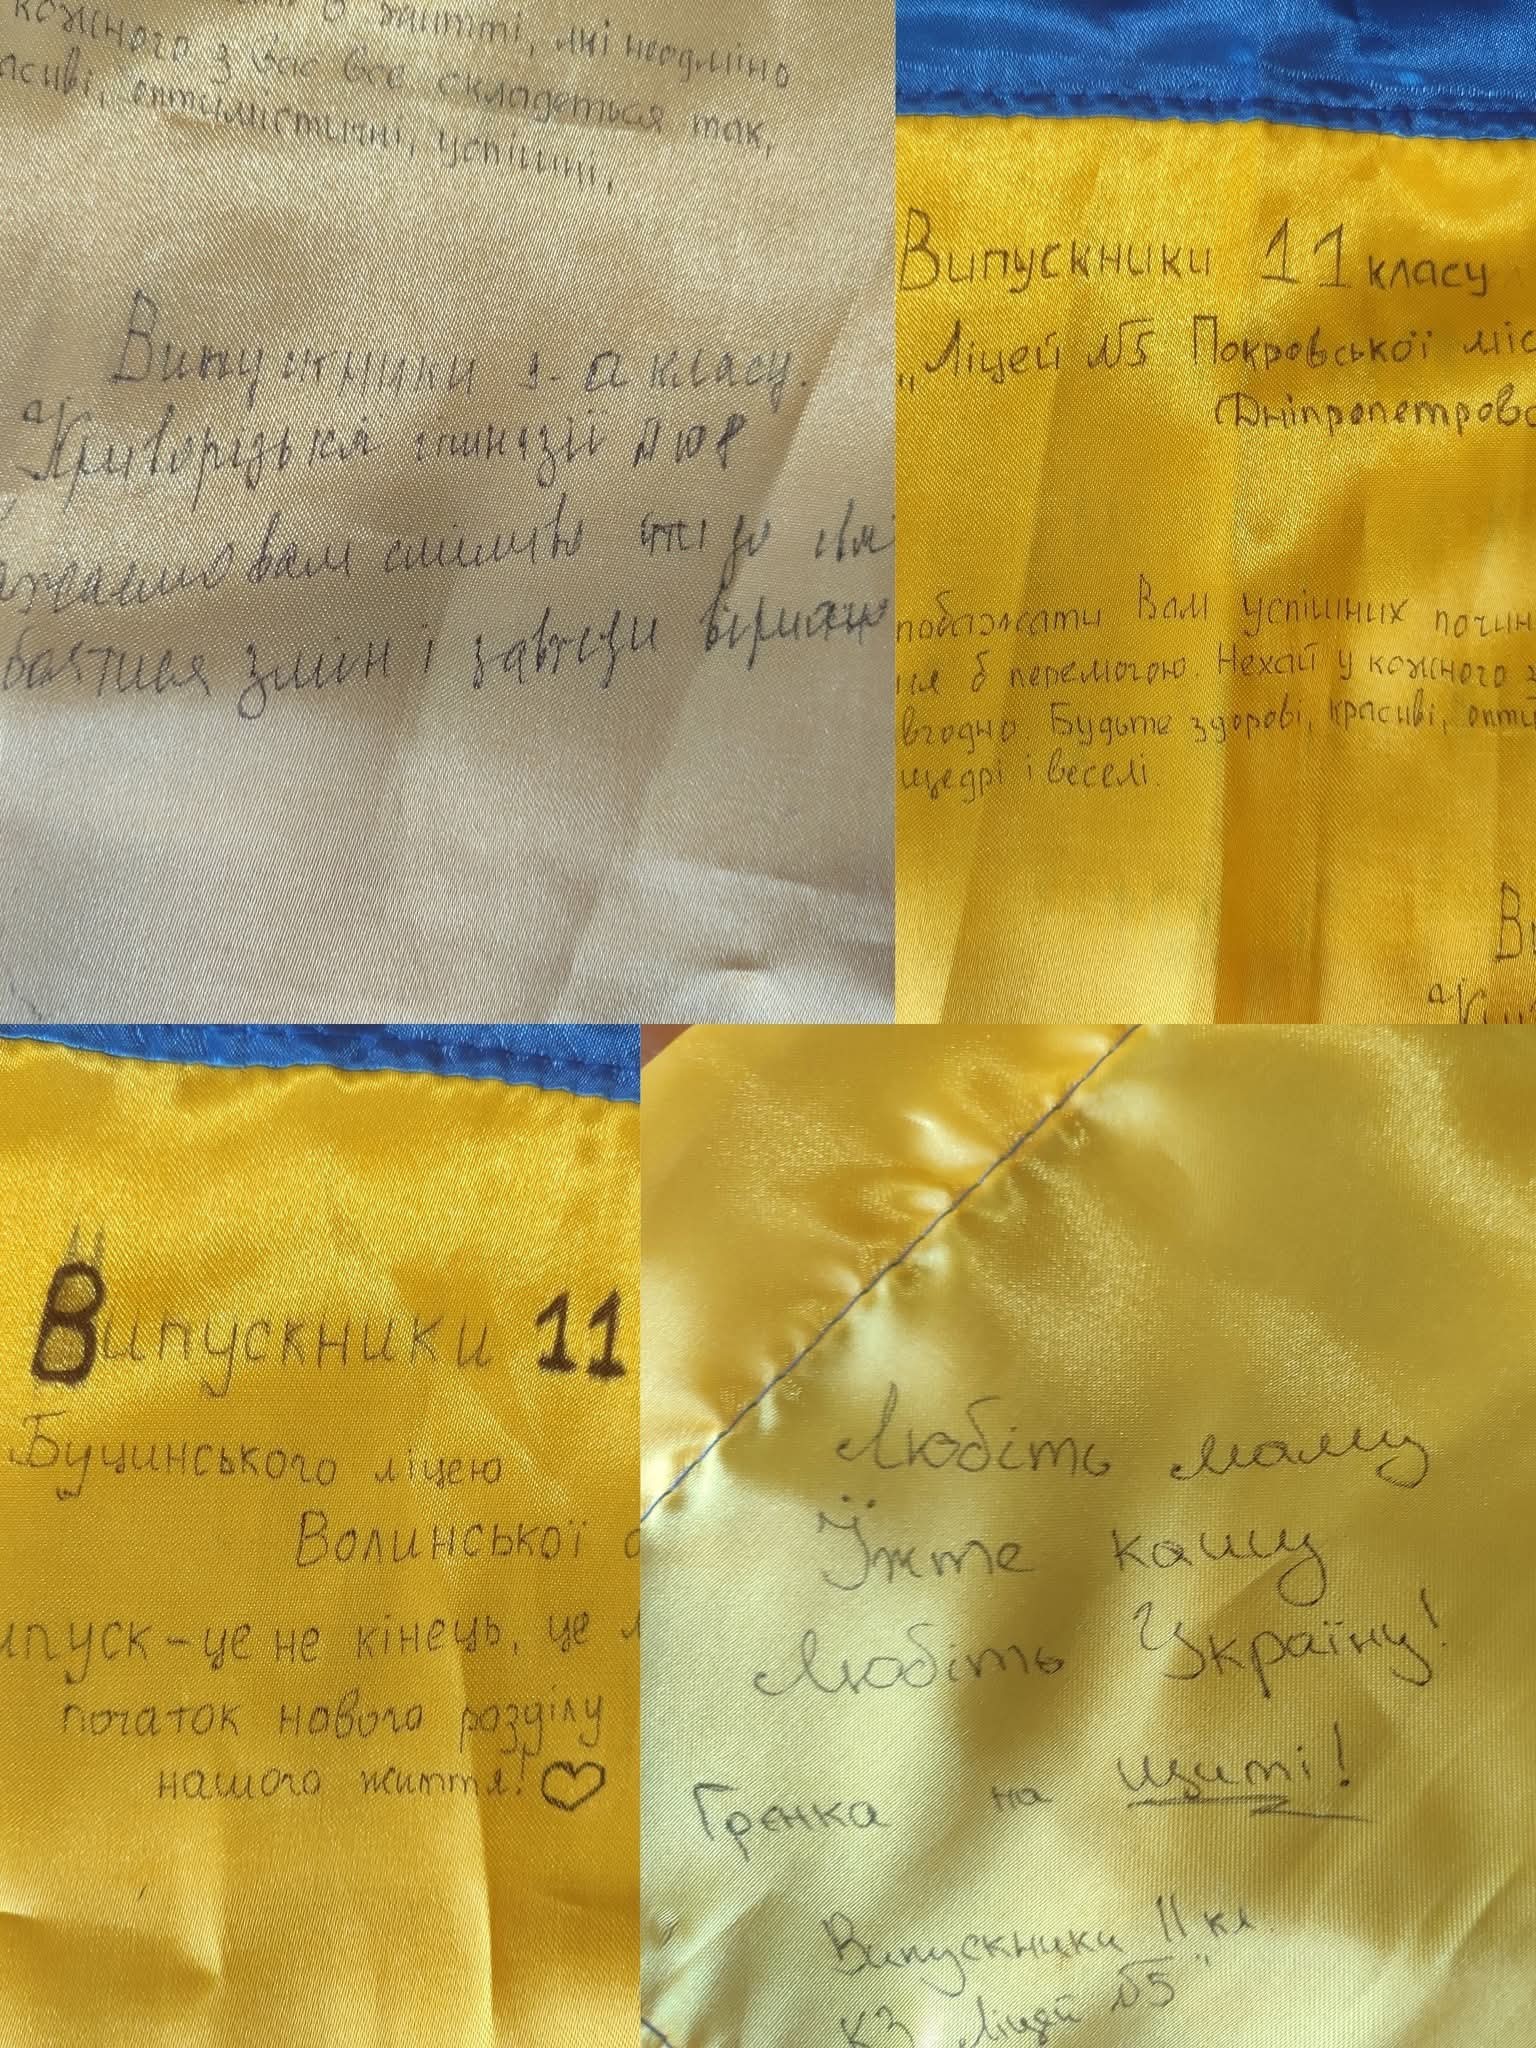 о житті, які неодмінно
кожного з Вас все складеться так,
оптимістичні, успішні,
Випускники 3-а класу.
"Криворізької гімназії
вам сміливо іти до
боятися змін і завжди
Випускники 11 класу
„Ліцей №5 Покровської міс
Дніпропетровс
побажати Вам успішних почин
ця б перемогою. Нехай у кожного з
вгодно. Будьте здорові, красиві, опти
щедрі і веселі.
Ви
Випускники 11
Буцинського ліцею
Волинської о
ипуск – це не кінець, це л
початок нового розділу
нашого життя!
Любіть маму
Їжте кашу
Любіть Україну!
Грєнка на щиті!
Випускники 11 кл.
КЗ Ліцей №5"